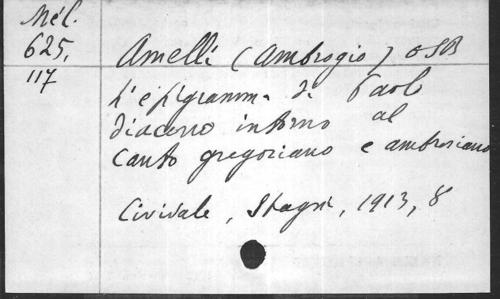 Mél.
625,
117
Amelli (Ambrogio) OSB
L'epigramma di Paolo
diacono intorno al
canto gregoriano e ambrosiano
Cividale, Stagni, 1913, 8